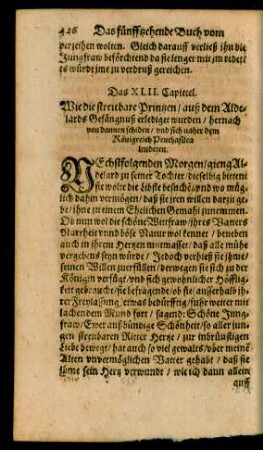 426 Das fünfftzehende Buch vom
verzeihen wolten. Gleich darauff verließ jhn die
Jungfraw beförchtend da sie lenger mit jm redet
es würde jme zu verdruß gereichen.
Das XLII. Capittel.
Wie die streitbare Printzen / auß dem Alde-
lards Gefängnuß erlediget wurden / hernach
von dannen schiden / vnd sich naher dem
Königreich Penthasilea
lendeten.
NEchstfolgenden Morgen / gieng Al-
delard zu seiner Tochter / dieselbig bittent
sie wolte die vnd wo müg-
lich dahin vermögen / daß sie jren willen darzu ge-
be / jhne zu einem Ehelichen Gemahl zunemmen.
Ob nun wol die schöne Wittfraw / jhres Vatters
Starrheit vnnd böse Natur wol kennet / beneben
auch in jhrem Hertzen mutmasset / daß alle mühe
vergebens seyn würde / Jedoch verhieß sie jhme
seinen Willen zuerfüllen / derwegen sie sich zu der
Königin verfüget / vnd sich gewohnlicher Höfflig-
keit gebrauchte / sie befragende / ob sie / ausserhalb jh-
rer Freylassung / etwas bedürfftig / fuhr weiter mit
lachendem Mund fort / sagend: Schöne Jung-
fraw / Ewer auß bündige Schönheit / so aller jun-
gen streitbaren Ritter Hertze / zur inbrünstigen
Liebe bewegt / hat auch so viel gewalts / vber meinē
Alten vnvermöglichen Vatter gehabt / daß sie
jhme sein Hertz verwundt / wie ich dann allein
auff